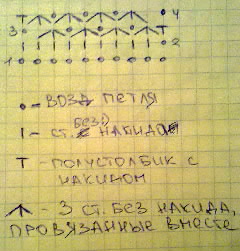 4
3
2
1
• – ВОЗД ПЕТЛЯ
БЕЗ
I – СТ. НАКИДА
Т – ПОЛУСТОЛБИК С
НАКИДОМ
– 3 СТ. БЕЗ НАКИДА,
ПРОВЯЗАННЫЕ ВМЕСТЕ